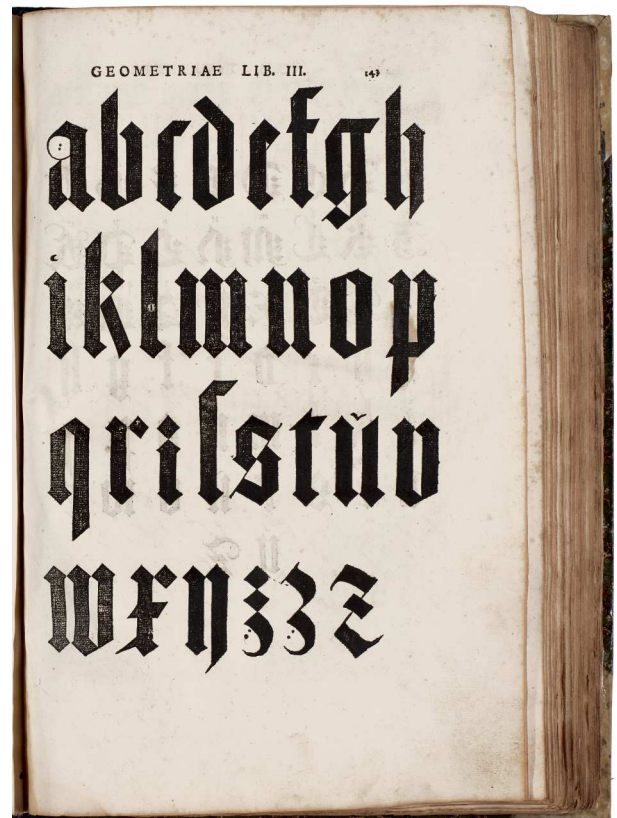 GEOMETRIAE LIB. III. 143
abcdefgh
iklmnop
qriſstŭv
wxyzzz